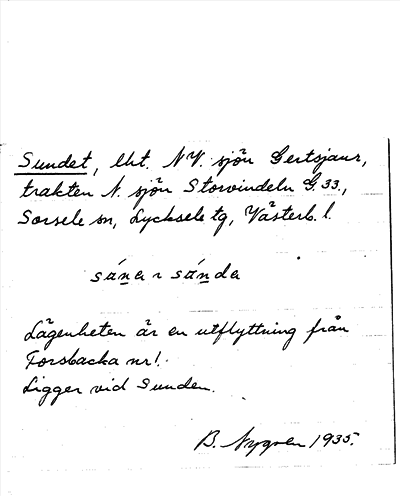 Sundet, lht. NV. sjön Gertsjaur,
trakten N. sjön Storvindeln G. 33.,
Sorsele sn, Lycksele tg, Västerb. l.
Lägenheten är en utflyttning från
Forsbacka nr 1.
Ligger vid Sunden.
B. Nygren 1935.